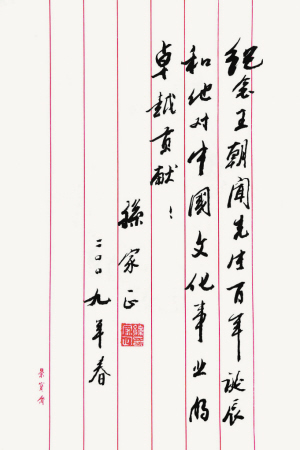 纪念王朝闻先生百年诞辰
和他对中國文化事业的
卓越贡献！
孫家正
二〇〇九年春
榮寶齋